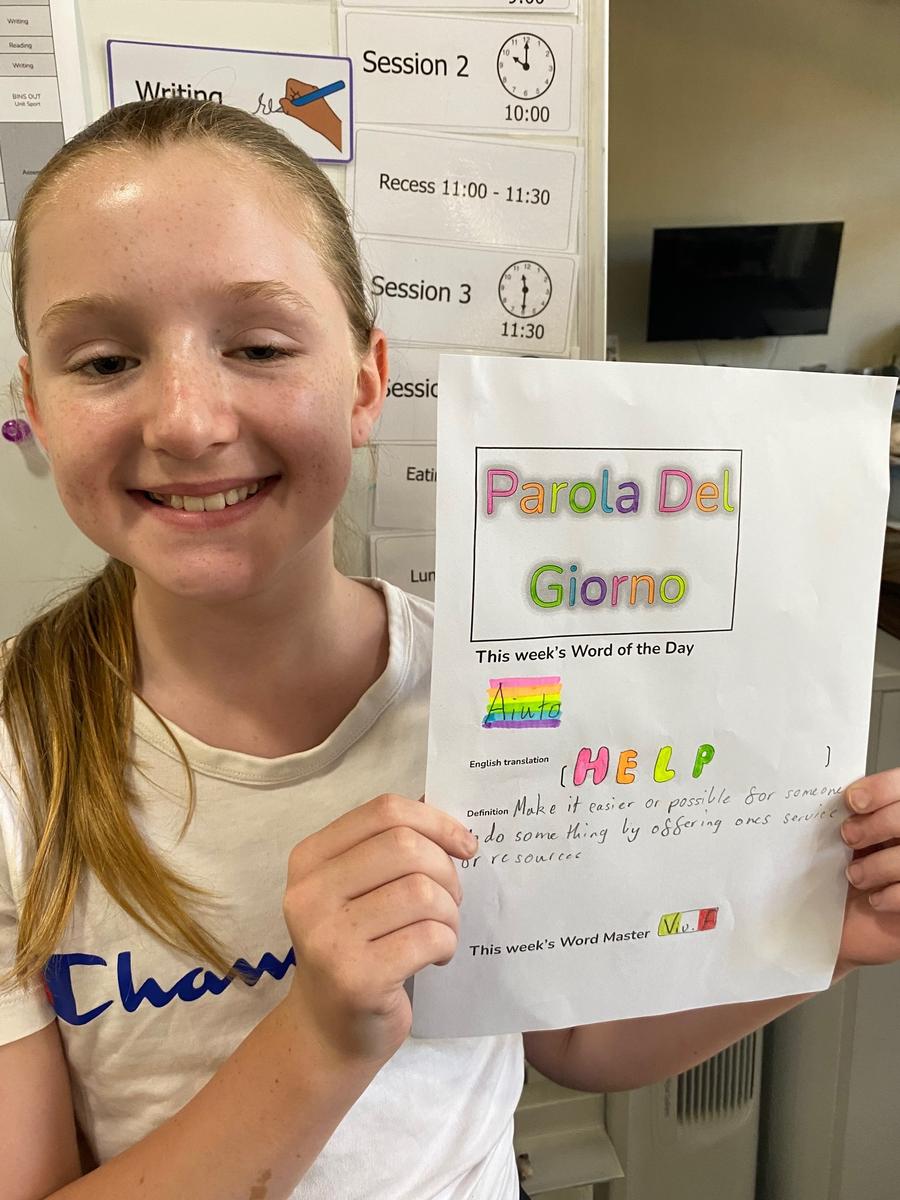 Writing
Reading
Writing
BINS OUT
Unit Sport
Writing
9:00
Session 2
10:00
Recess 11:00 - 11:30
Session 3
11:30
Parola Del
Giorno
This week's Word of the Day
Aiuto
English translation [HELP ]
Definition Make it easier or possible for someone
do something by offering ones service
or resources
This week's Word Master Viv. A